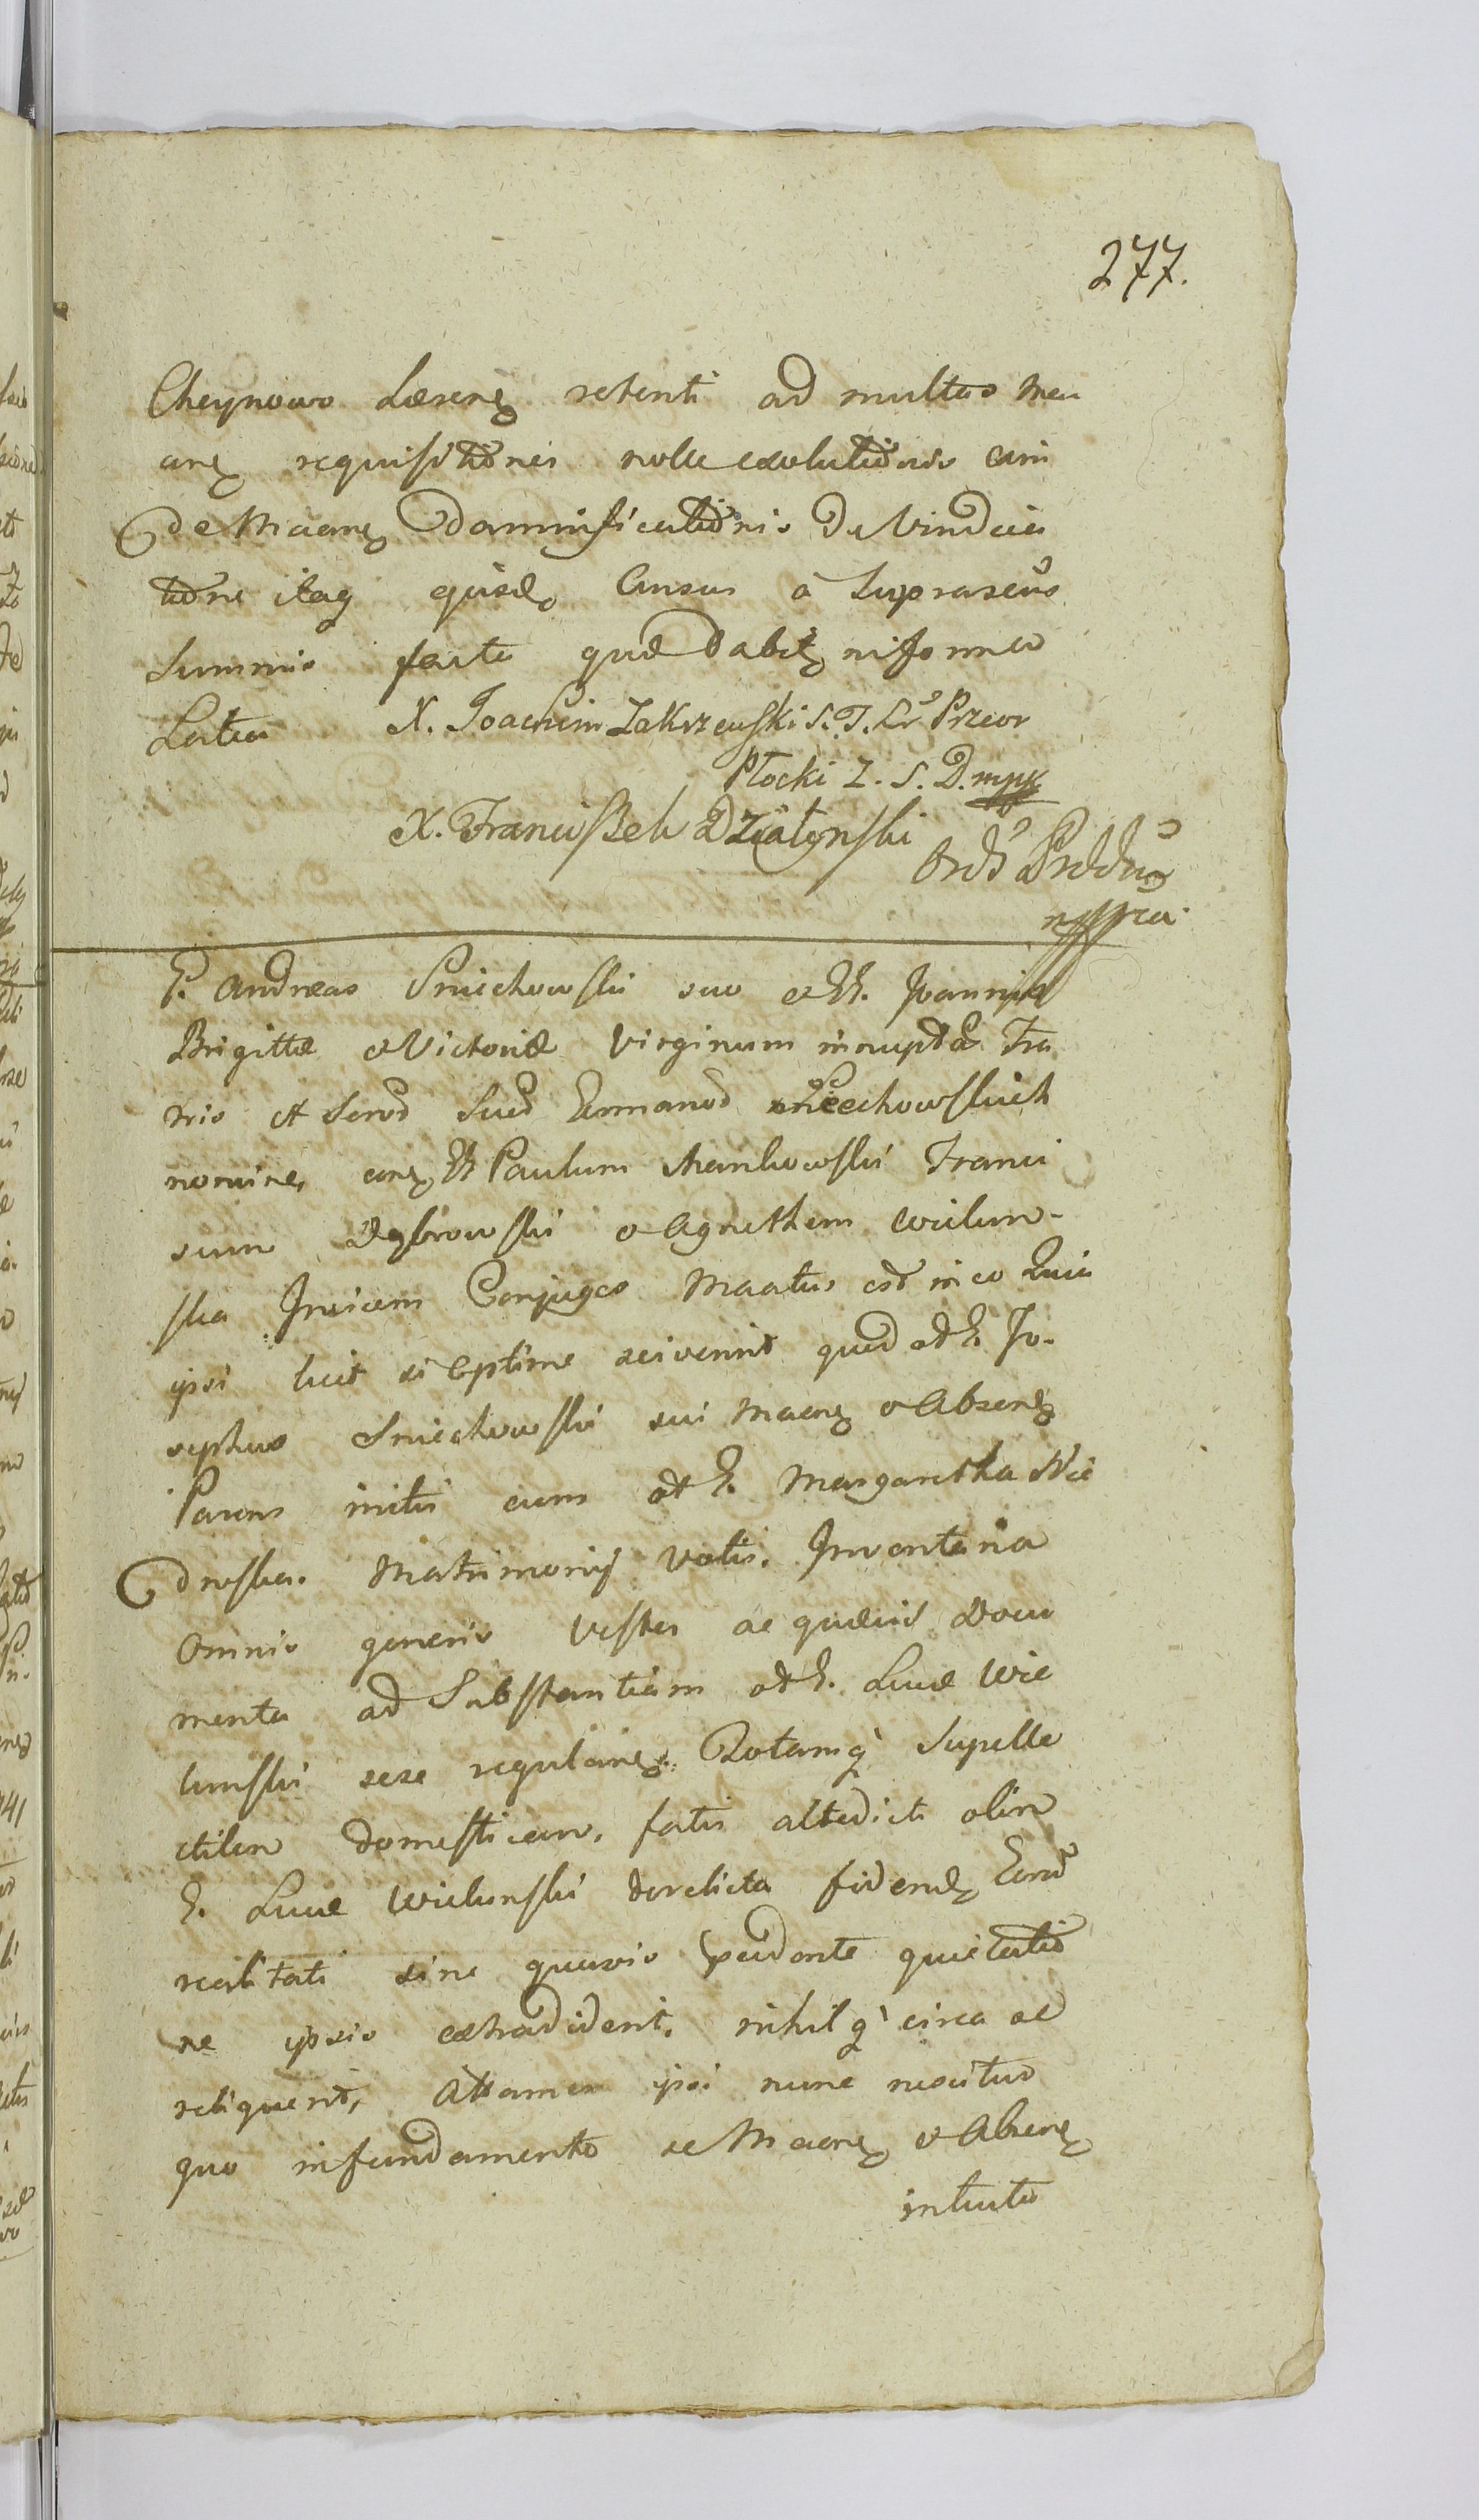 277.
Cheynowo Læsenq retenti ad multas Mea
anq requisitiones nolle exolutionis eam
deMaanq damnificationis De Vindica
tione itaq ejusd Census à suprascus
summis facta quæ dabit in forma
Lata X. Joachim Zakrzewski S. T. Lr Przeor
Płocki Z. S. D. mpp
X. Franciszek Działynski
Ords Prdd
mppria
G. Andreas Smiechowski suo et GG. Joannis
Brigittæ et Victoriæ Virginum innupta Fra
tris et Sorod Sued Germanod Smiechowskich
nomine, conq GG Paulum Mankowski Franci
scum Dąbrowski et Agnethem Wielun-
ska Invicem Conjuges Maatus est in eo Quia
ipsi licet si optime sciverint quod olt G. Jo-
sephus Smiechowski sui Maanq et Absenq
Parens initis cum olt G. Margaretha Wie
dnska. Matrimonij Votis. Inventaria
Omnis generis Vestes ac quævis Docu
menta ad Substantiam olt G. Lucæ Wie
lunski sese regulanq. Totamq supelle
ctilem domesticam, fatis altedicti olim
G. Lucæ Wielunski derelicta fidend Eord
realitati sine quavis pendente quietatio
ne ipsis extradiderit, nihil q circa se
reliquerit, Attamen ipsi nunc nescitur
quo in fundamento se Maanq et Absenq
intuitu